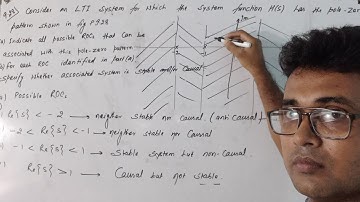 9.23) Consider an LTI System for which the System function H(S) has the pole-zero
pattern shown in fig P9.23
(a) Indicate all possible ROCs that can be
associated with this pole-zero pattern
(b) for each ROC identified in part(a)
specify whether associated system is stable and/or Causal
Possible ROC.
Re{S} < -2 → neigher stable nor Causal (anti causal)
-2 < Re{S} < -1 → neigher stable nor Causal
-1 < Re{S} < 1 → Stable system but non-causal.
Re{S} > 1 → Causal but not stable.